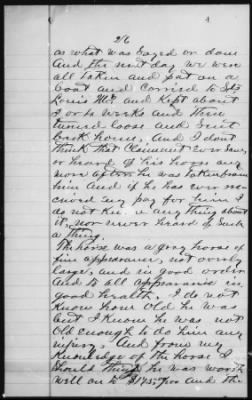 4
26
as what was said or don
And the next day we were
all taken and put on a
boat and carried to St
Louis Mo. and kept about
2 or 3 weeks and then
turned loose and sent
back home, And I dont
think that Claimant ever saw
or heard of his horse any
more after he was taken from
him And if he has ever re-
cieved any pay for him I
do not know any thing about
it, nor never heard of such
a thing.
The horse was a gray horse of
fine appearance, not overly
large, and in good order
And to all appearance in
good health, I do not
know how old he was
but I know he was not
old enough to do him any
injury, And from my
knowledge of the horse I
should think he was worth
well on to $175.00 and the